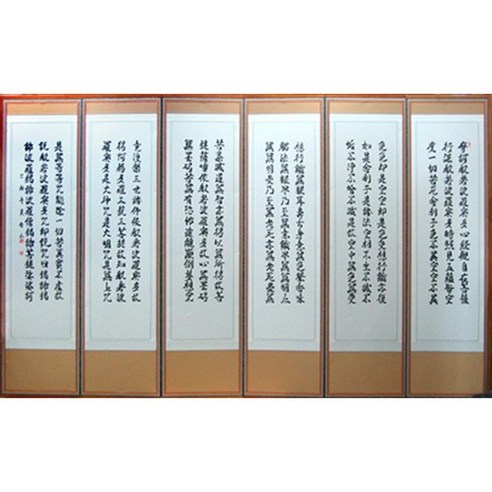 摩訶般若波羅蜜多心經觀自在菩薩
行深般若波羅蜜多時照見五蘊皆空
度一切苦厄舍利子色不異空空不異
色色即是空空即是色受想行識亦復
如是舍利子是諸法空相不生不滅不
垢不淨不增不減是故空中無色無受
想行識無眼耳鼻舌身意無色聲香味
觸法無眼界乃至無意識界無無明亦
無無明盡乃至無老死亦無老死盡無
苦集滅道無智亦無得以無所得故菩
提薩埵依般若波羅蜜多故心無罣碍
無罣碍故無有恐怖遠離顛倒夢想究
竟涅槃三世諸佛依般若波羅蜜多故
得阿耨多羅三藐三菩提故知般若波
羅蜜多是大神咒是大明咒是無上咒
是無等等咒能除一切苦真實不虛故
說般若波羅蜜多咒即說咒曰揭諦揭
諦波羅揭諦波羅僧揭諦菩提娑婆訶